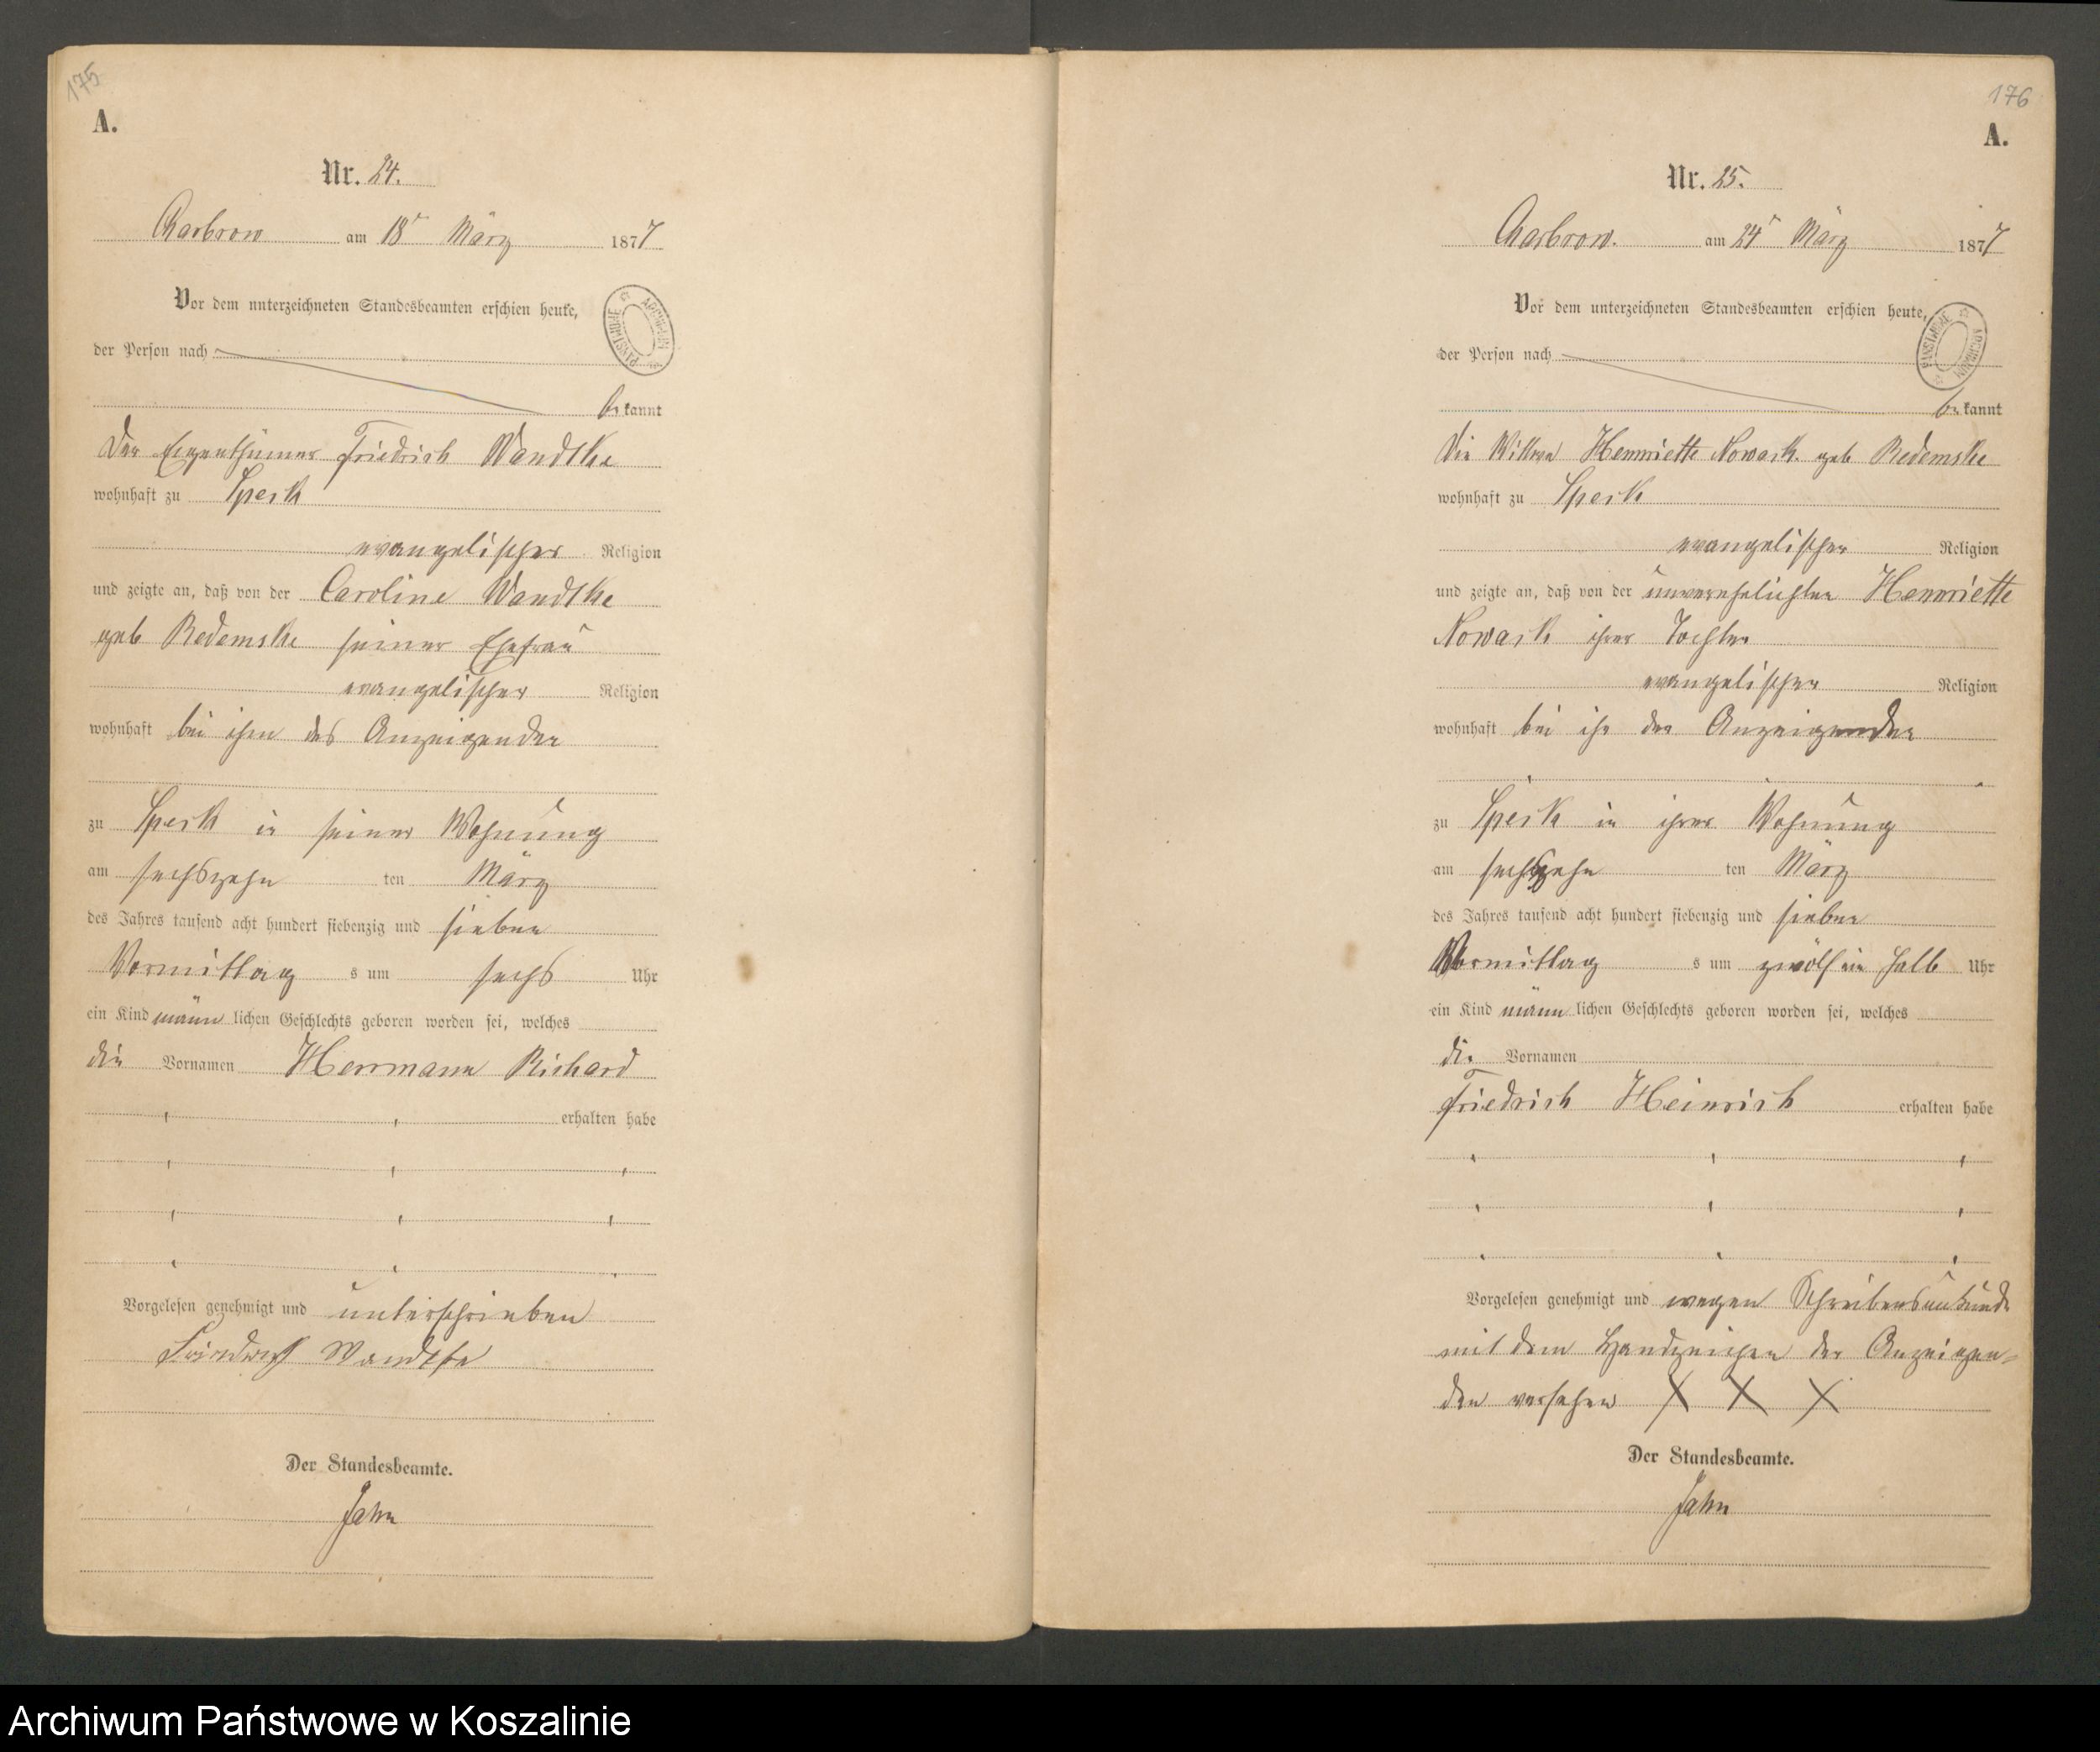 175
A.
Nr. 24.
Charbrow am 18r März 1877
Vor dem unterzeichneten Standesbeamten erschien heute,
ARCHIWUM PAŃSTWOWE
der Person nach
bekannt
Der Eigenthümer Friedrich Wandtke
wohnhaft zu Speck
evangelischer Religion
und zeigte an, daß von der Caroline Wandtke
geb Redemske seiner Ehefrau
evangelischer Religion
wohnhaft bei ihm des Anzeigenden
zu Speck in seiner Wohnung
am sechszehn ten März
des Jahres tausend acht hundert siebenzig und sieben
Vormittag s um sechs Uhr
ein Kind männ lichen Geschlechts geboren worden sei, welches
die Vornamen Herrmann Richard
erhalten habe
Vorgelesen genehmigt und unterschrieben
Friedrich Wandtke
Der Standesbeamte.
Jahn
176
A.
Nr. 25.
Charbrow. am 24r März 1877
Vor dem unterzeichneten Standesbeamten erschien heute,
ARCHIWUM PAŃSTWOWE
der Person nach
bekannt
Die Wittwe Henriette Nowack geb Redemske
wohnhaft zu Speck
evangelischer Religion
und zeigte an, daß von der unverehelichten Henriette
Nowack ihrer Tochter
evangelischer Religion
wohnhaft bei ihr der Anzeigenden
zu Speck in ihrer Wohnung
am sechszehn ten März
des Jahres tausend acht hundert siebenzig und sieben
Vormittag s um zwölf ein halb Uhr
ein Kind männ lichen Geschlechts geboren worden sei, welches
die Vornamen
Friedrich Heinrich erhalten habe
Vorgelesen genehmigt und wegen Schreibensunkunde
mit dem Handzeichen der Anzeigen=
den versehen X X X
Der Standesbeamte.
Jahn
Archiwum Państwowe w Koszalinie